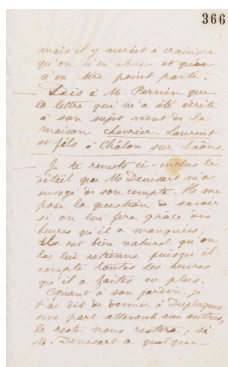 366
mais il y aurait à craindre
qu'on n'en abuse et qu'on
n'en tire point parti.
— Dais à M. Pernin que
la lettre qui m'a été écrite
à son sujet vient de la
maison Chevrier-Laurent
et fils à Châlon sur Saône.
— Je te remets ci-inclus le
détail que Mr Denisart m'a
envoyé de son compte. Il me
pose la question de savoir
si on lui fera grâce des
heures qu'il a manquées,
Il est bien naturel qu'on
les lui retienne puisqu'il
compte toutes les heures
qu'il a faites en plus.
Quant à son jardin, je
t'ai dit de donner à
une part attenant aux autres,
le reste nous restera; si
Mr. Denisart a quelque